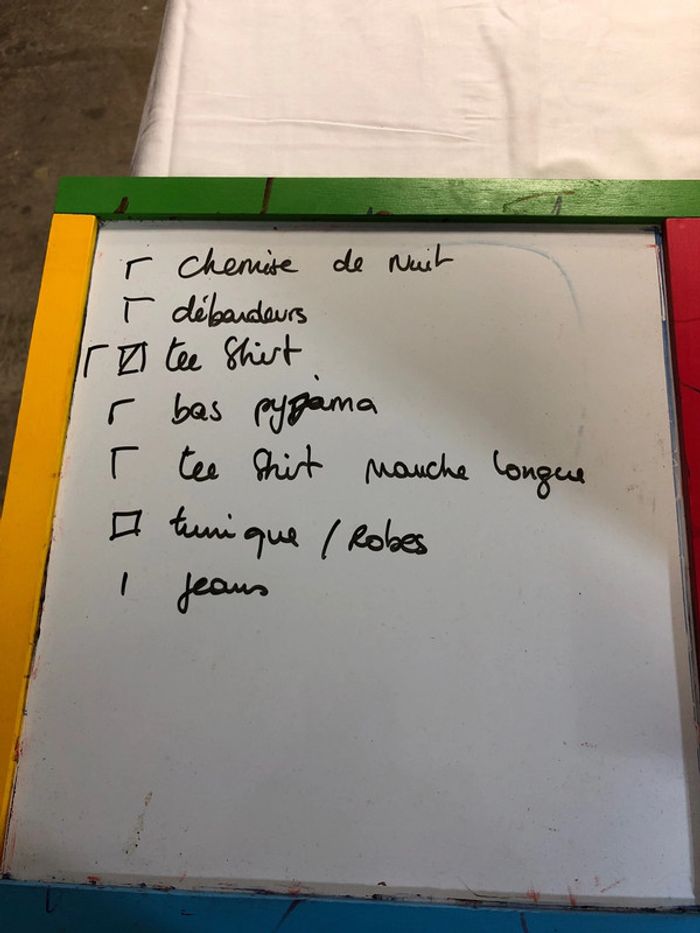 chemise de Nuit
débardeurs
tee Shirt
bas pyjama
tee Shirt manche longue
tunique / Robes
jeans